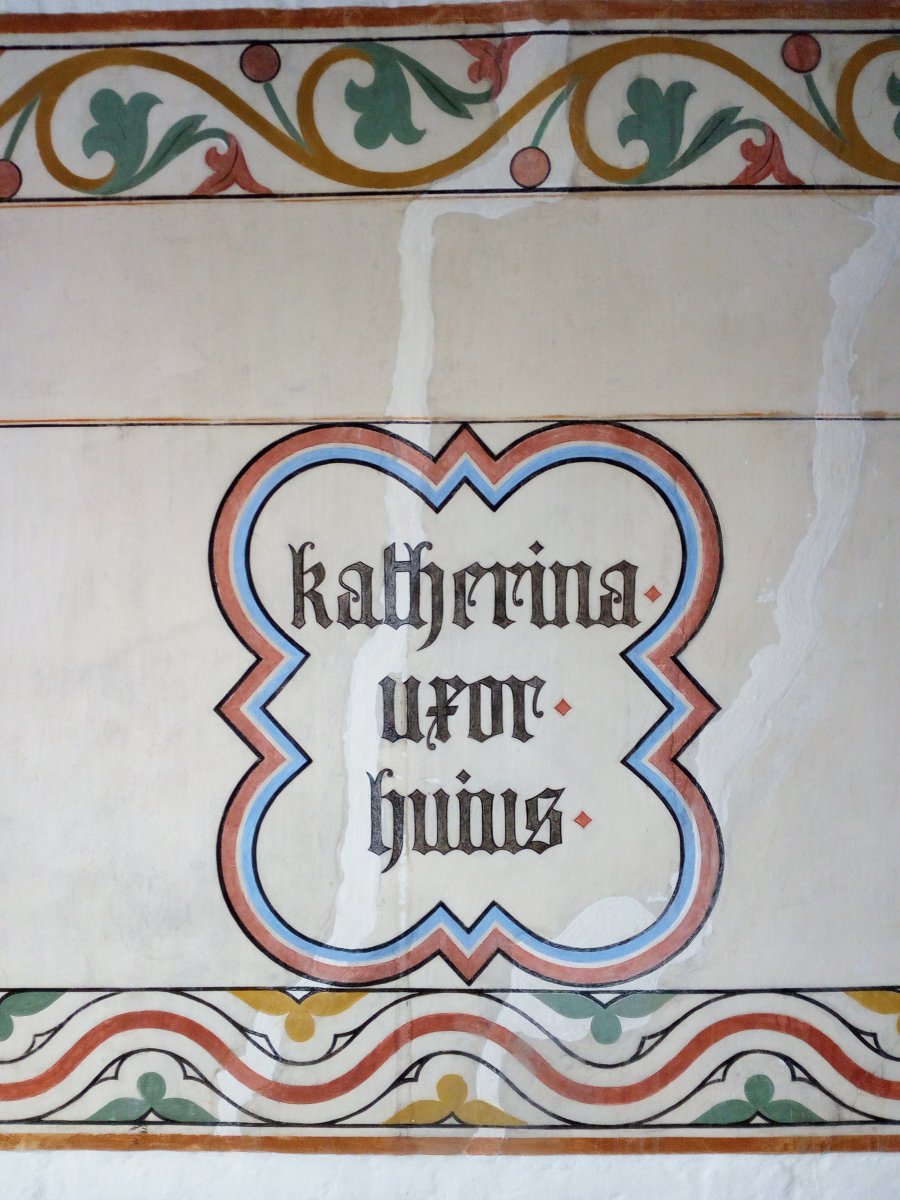 katherina·
uxor·
huius·